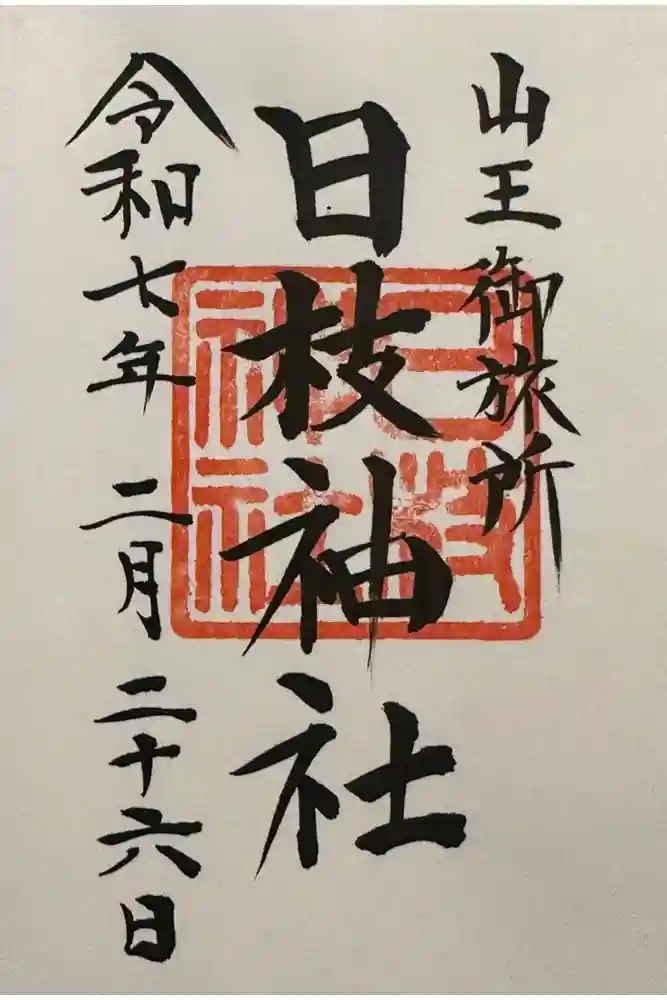 山王御旅所
日枝神社
日枝神社
令和七年 二月 二十六日